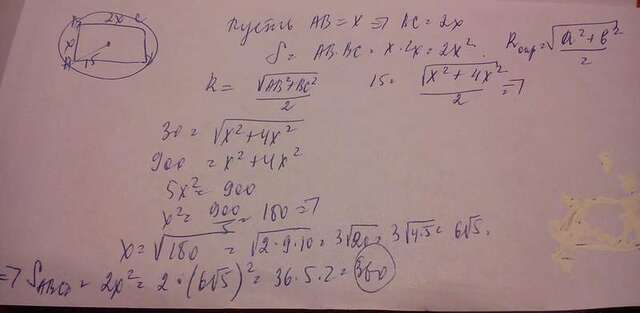 B 2x C
x
A 15 D
Пусть AB = x => BC = 2x
S = AB·BC = x·2x = 2x². Rокр = √(a² + b²)/2
R = √(AB²+BC²)/2 15 = √(x² + 4x²)/2 =>
30 = √(x² + 4x²)
900 = x² + 4x²
5x² = 900
x² = 900/5 = 180 =>
x = √180 = √(2·9·10) = 3√20 = 3√(4·5) = 6√5.
=> S ABCD = 2x² = 2·(6√5)² = 36·5·2 = 360